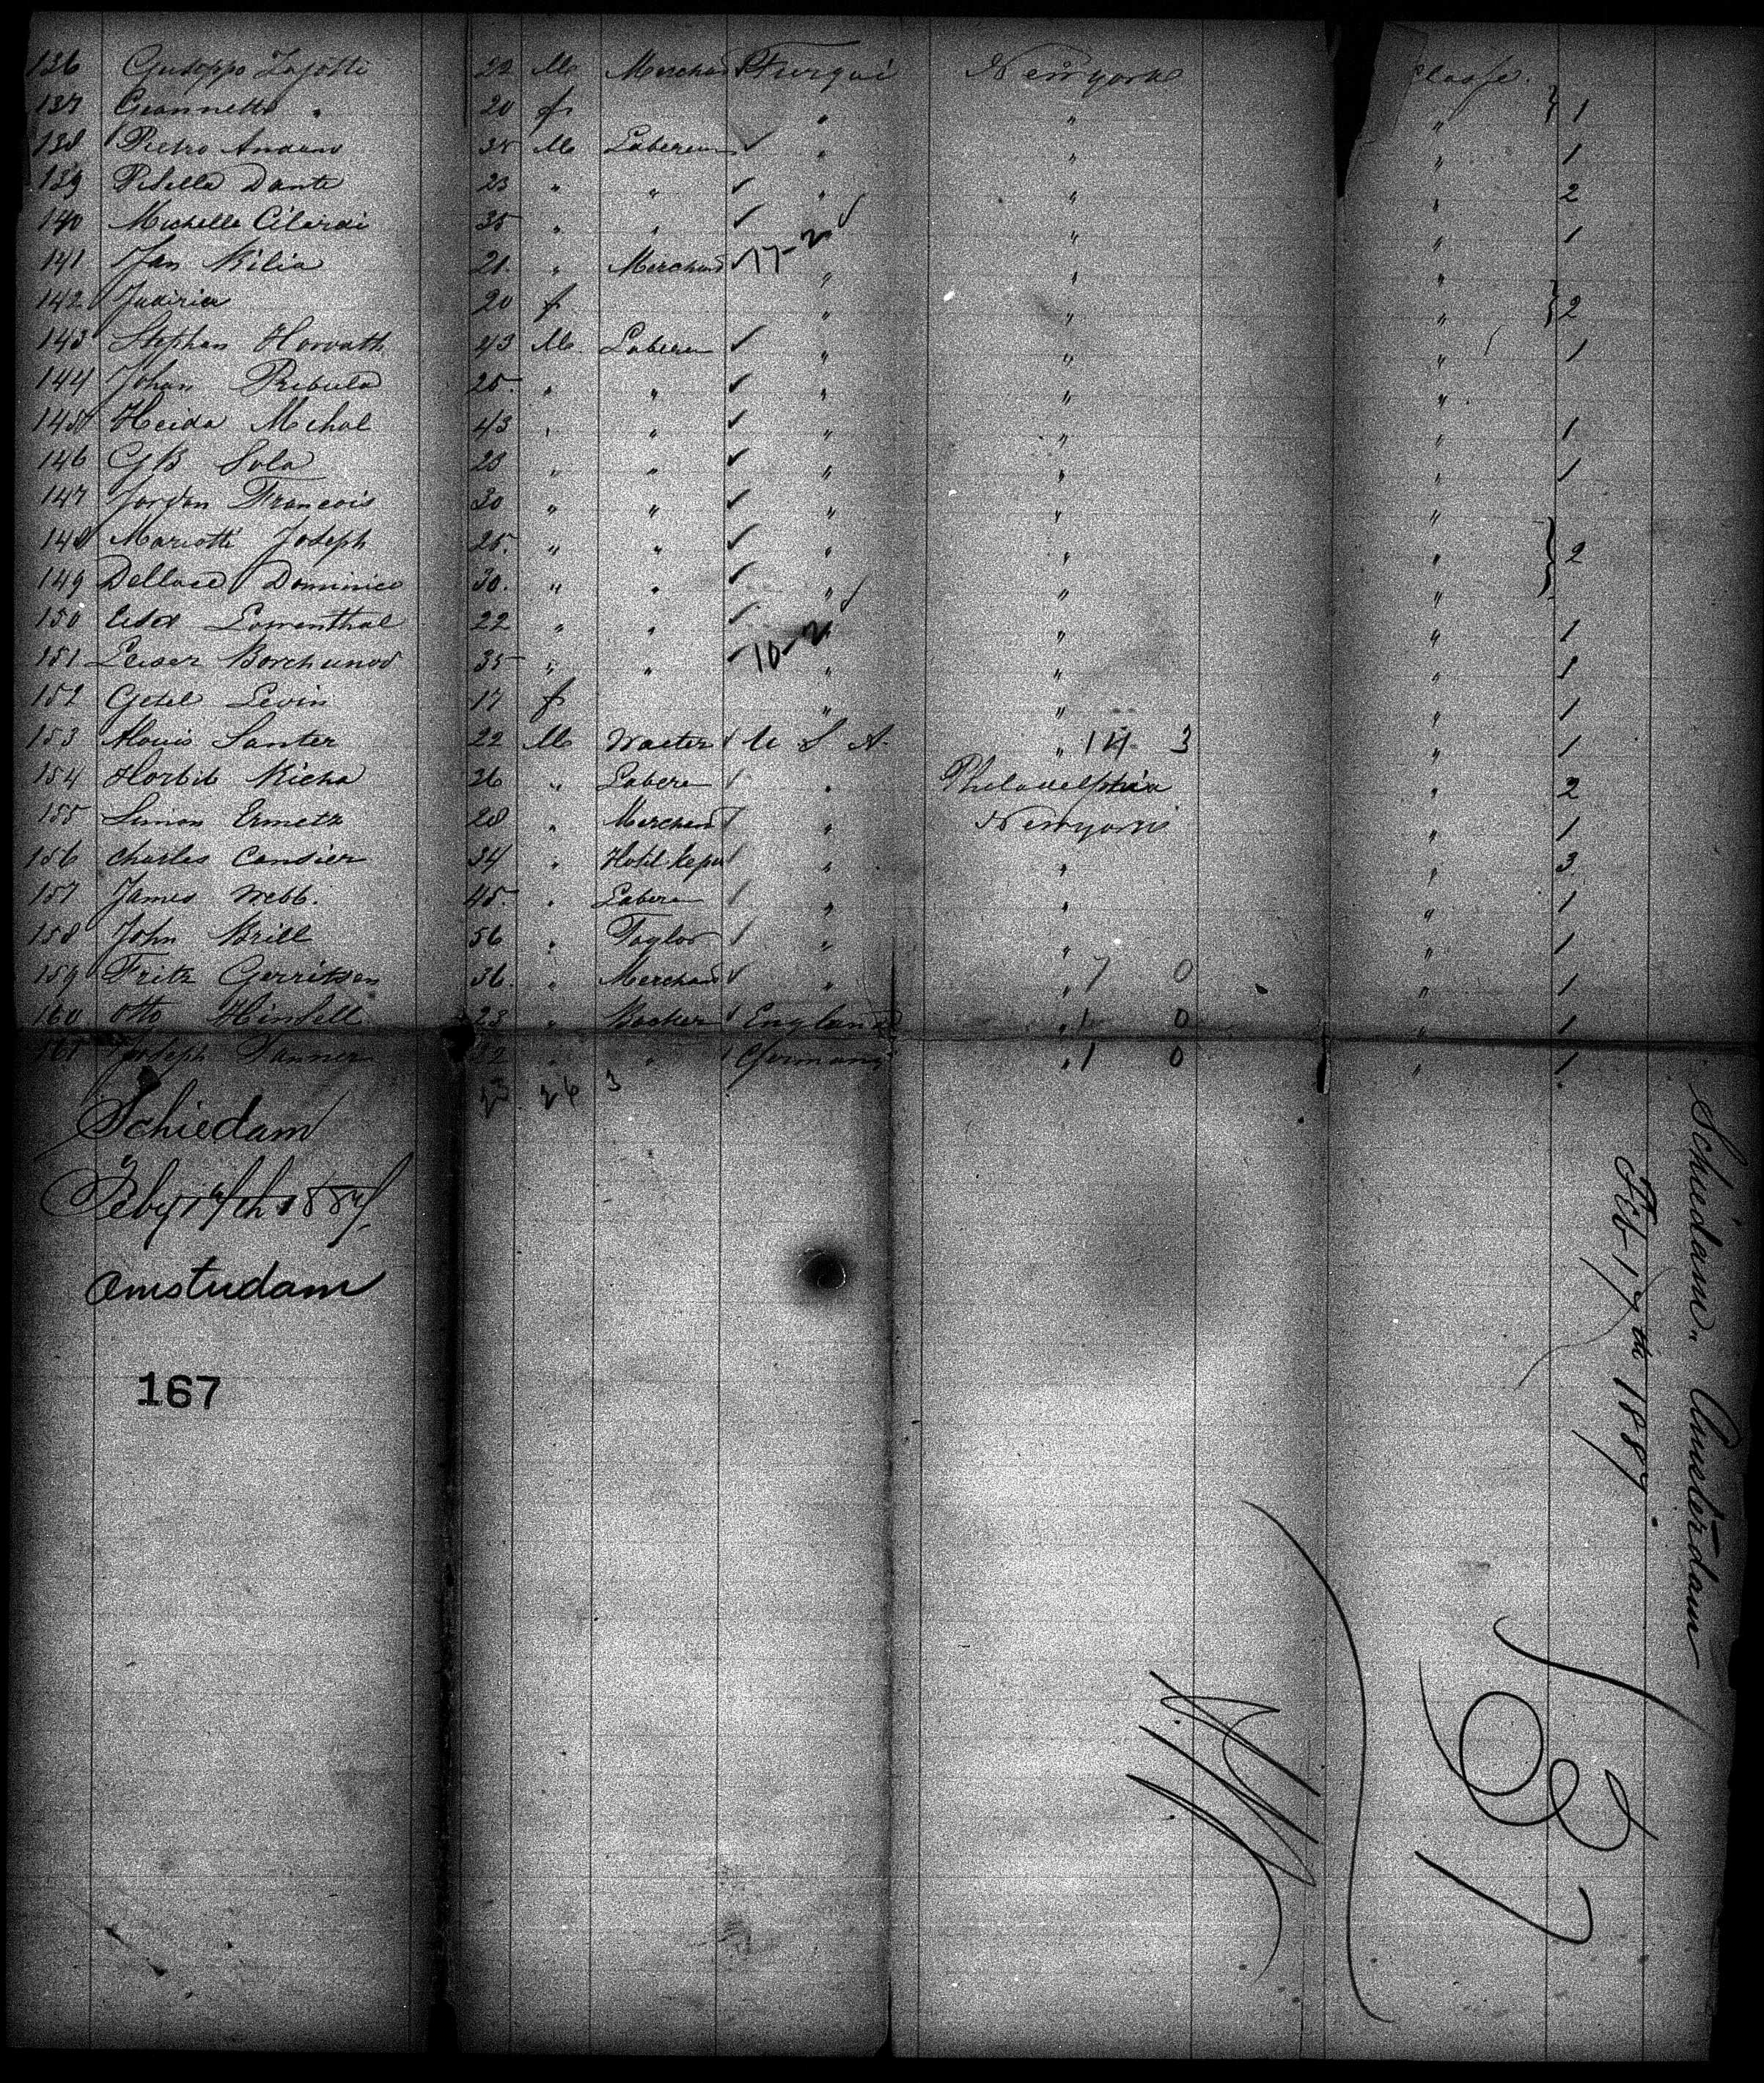 136 Guseppo Zajotti 22 M Merchan Turqui Newyork Classe.
137 Giannetto " 20 f " " " } 1
138 Pietro 35 M Labereur ✓ " " " 1
139 Pisella Dante 23 " " ✓ " " " 2
140 Michelle Cilardi 35 " " ✓ " " 1
141 Jan Kilia 21. " Merchand ✓ 17-2 " " "
142 20 f " " " } 2
143 Stephan Horvath 43 M. Labere ✓ " " " 1
144 Johan Pribula 25. " " ✓ " " "
145 Heida Michal 43 " " ✓ " " " 1
146 GB Sola 28 " " ✓ " " " 1
147 Jordan Francois 30 " " ✓ " " "
148 Mariotti Joseph 25. " " ✓ " " " } 2
149 Dellace Dominico 30. " " ✓ " " "
150 Lowenthal 22 " " ✓ " " 1
151 Leiser 35 " " ✓ 10-2 " " " 1
152 Getel Levin 17 f " " " 1
153 Alouis Santer 22 M Waiter U S A. " 14. 3 " 1
154 Kicha 26 " Labere " Philadelphia " 2
155 Simon Ermetz 28 " Merchand " Newyork " 1
156 Charles Cansier 34 " Hotel keper " " " 3
157 James Webb. 45. " Labere " " " 1
158 John Brill 56 " Taylor " " " 1
159 Fritz Gerritsen 36. " Merchand ✓ " " 7 0 " 1
160 Otto 23 " Backer England " 1 0 " 1
161 Joseph Tanner 32 " " Germany " 1 0 " 1
23 26 3
Schiedam
Feby 17th 1887
Amsterdam
167
Schiedam. Amsterdam
Feb 17th 1887.